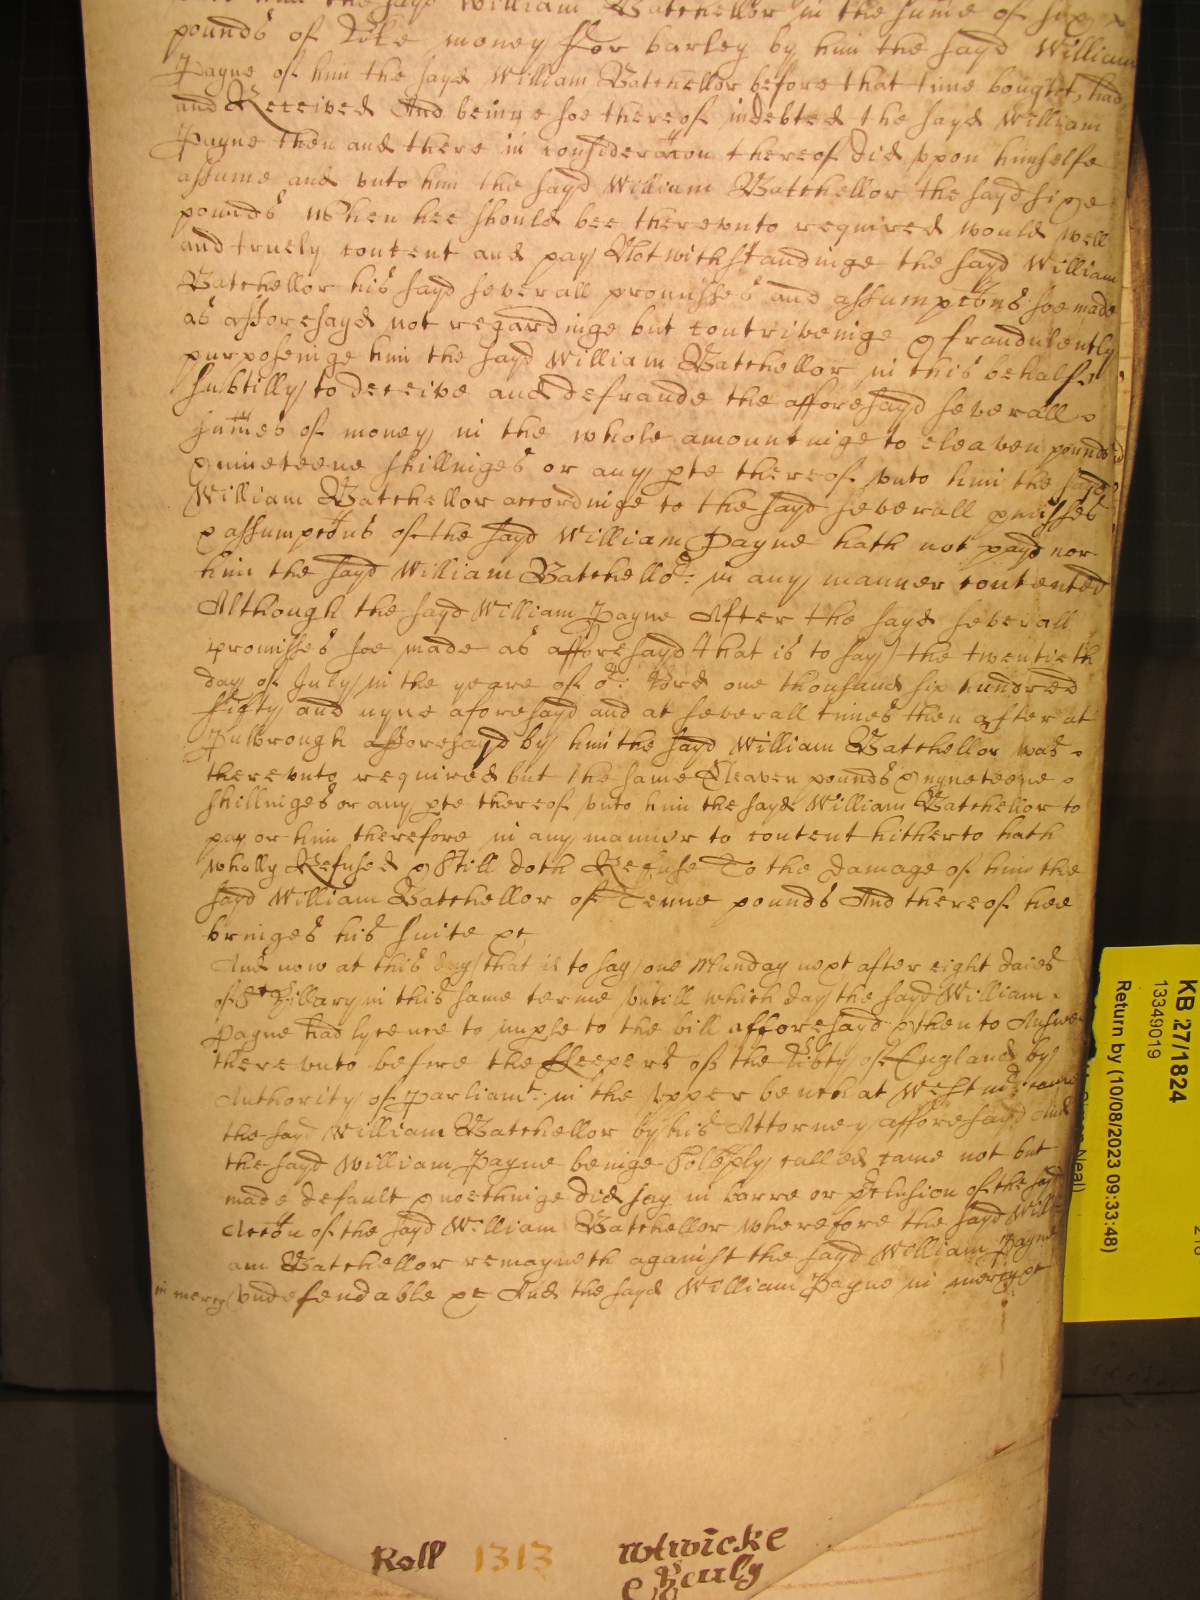 unto him the sayd William Batchellor in the sume of six
pounds of like money for barley by him the sayd William
Payne of him the sayd William Batchellor before that time bought, had,
and Received And beinge soe thereof indebted the sayd William
Payne then and there in consideracon thereof did vpon himselfe
assume and vnto him the sayd William Batchellor the sayd sixe
pounds when hee should bee therevnto required would well
and truely content and pay Notwithstandinge the sayd William
Batchellor his sayd severall promisses and assumpcons soe made
as afforesayd not regardinge but contriveinge & fraudulently
purposeinge him the sayd William Batchellor in this behalfe
subtilly to deceive and defraude the afforesayd severall
sumes of money in the whole amountinge to eleaven pounds
& nineteene shillinges or any pte thereof vnto him the sayd
William Batchellor accordinge to the sayd severall pmisses
& assumpcons of the sayd William Payne hath not payd nor
him the sayd William Batchellor: in any manner contented
Although the sayd William Payne After the sayd severall
promisses soe made as afforesayd (that is to say) the twentieth
day of July in the yeare of or: Lord one thousand six hundred
fifty and nyne aforesayd and at severall times then after at
Pulbrough afforesayd by him the sayd William Batchellor was
therevnto required but the same Eleaven pounds & nyneteene
shillinges or any pte thereof vnto him the sayd William Batchellor to
pay or him therefore in any manner to content hitherto hath
wholly Refused & still doth Refuse To the damage of him the
sayd William Batchellor of Tenne pounds And thereof hee
bringes his suite &c
And now at this day (that is to say) one Munday next after eight daies
of St Hillary in this same terme vntill which day the sayd William
Payne had lycence to imple to the bill afforesayd & then to Answer
therevnto before the Keepers of the Libty of England by
Authority of Parliamt: in the vpper bench at Westmr: came
the sayd William Batchellor by his Attorney afforesayd And
the sayd William Payne beinge Solemply called came not but
made default & noethinge did say in barre or pclusion of the sayd
Accon of the sayd William Batchellor wherefore the sayd Willi
am Batchellor remayneth against the sayd William Payne
in mercy vndefendable &c And the sayd William Payne in mercy &c
Roll 1313
wtwicke
& Pauly
KB 27/1824
13349019
Return by (10/08/2023 09:33:48)
Neal)